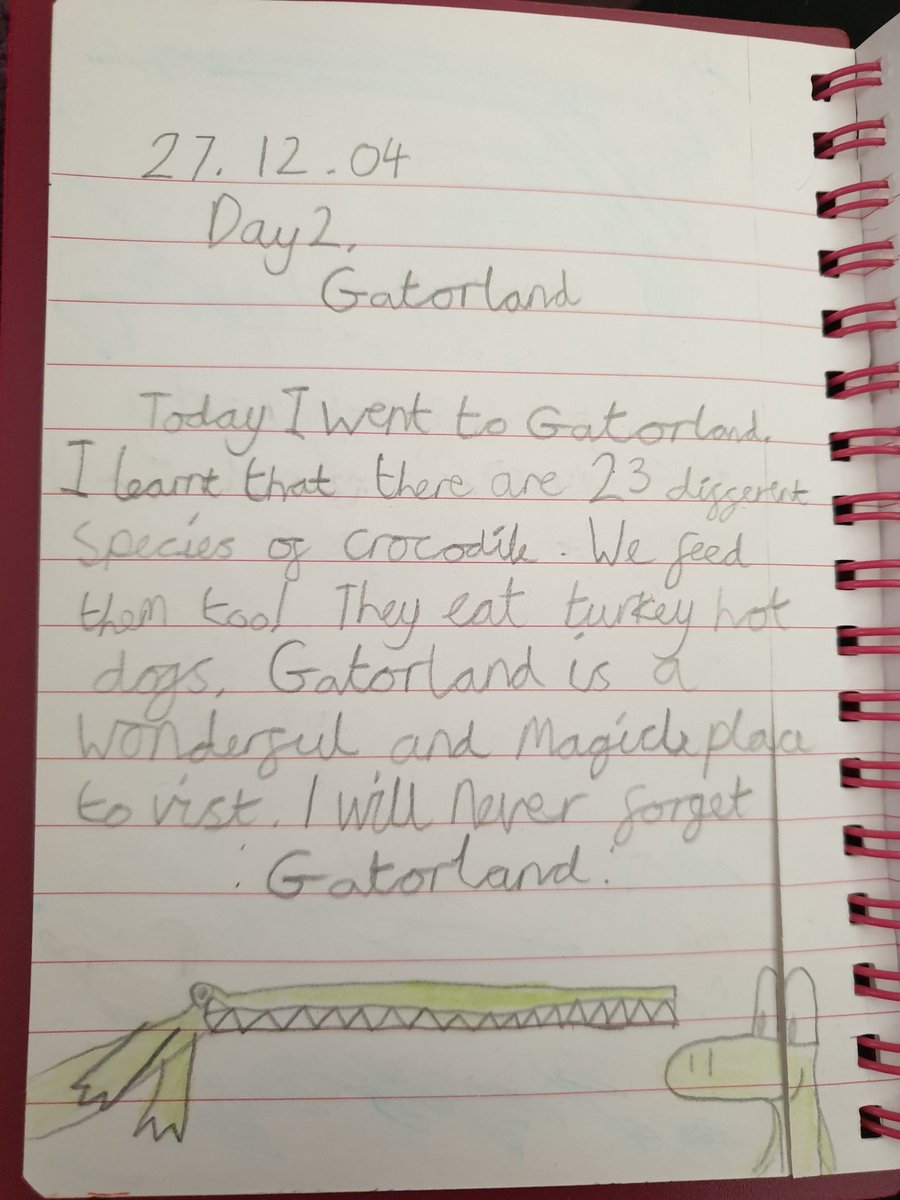 27.12.04
Day 2.
Gatorland
Today I went to Gatorland.
I learnt that there are 23 different
species of crocodile. We feed
them too! They eat turkey hot
dogs. Gatorland is a
wonderful and magicle place
to vist. I will never forget
Gatorland.